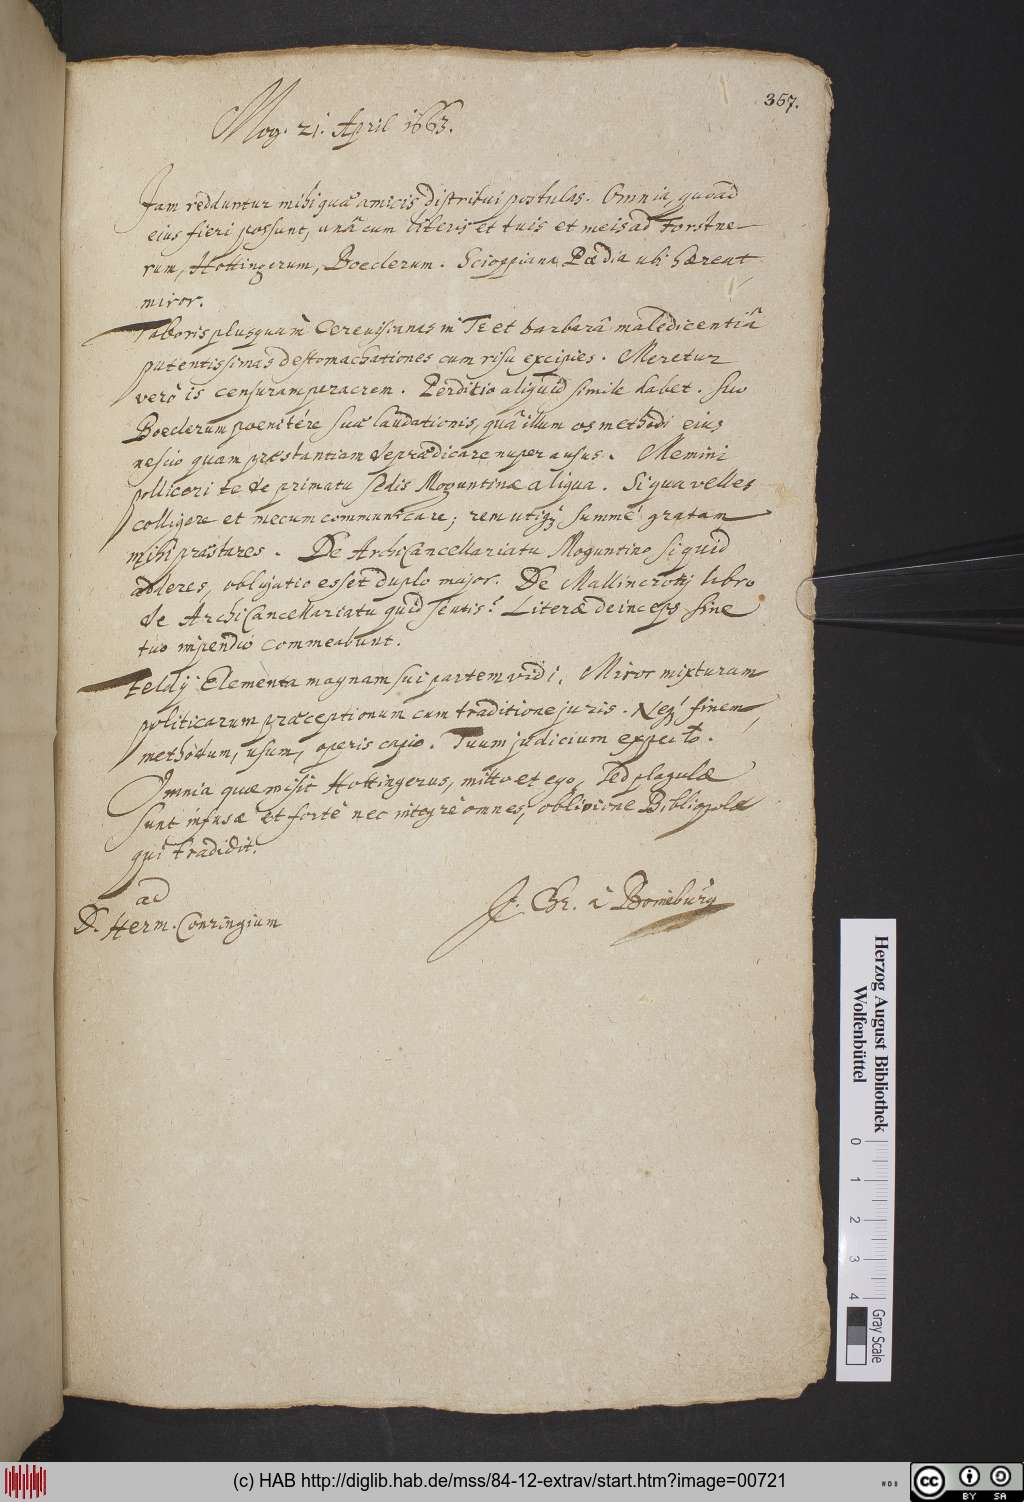 367.
Mog. 21. April 1663.
Jam redduntur mihi quae amicis distribui postulas. Omnia, quoad
eius fieri possunt, unâ cum literis et tuis et meis ad Forstne-
rum, Hottingerum, Boeclerum. Scioppiana Paedia ubi haereat
miror.
Taboris plusquam Cerevisianas in Te et barbarâ maledicentiâ
putentissimas destomachationes cum risu excipies. Meretur
verò is censuram peracrem. Perditio aliquid simile habet. Suo
Boeclerum poenitere suae laudationis, quâ illum os methodi eius
nescio quam praestantiam depraedicare nuper ausus. Memini
polliceri te de primatu sedis Moguntinae aliqua. Si qua velles
colligere et mecum communicare; rem utiq; summè gratam
mihi praestares. De ArchiCancellariatu Moguntino si quid
adderes, obligatio esset duplo major. De Mallincrotij libro
de ArchiCancellariatu quid sentis? Literae deinceps sine
tuo impendio commeabunt.
Feldij Elementa magnam sui partem vidi. Miror mixturam
politicarum praeceptionum cum traditione juris. Neq; finem,
methodum, usum, operis capio. Tuum judicium expecto.
Omnia quae misit Hottingerus, mitto et ego, sed plagulae
sunt infusae et fortè nec integrè omnes, oblivione Bibliopolae
qui tradidit.
ad
D. Herm. Conringium
J. Chr. à Boineburg
Herzog August Bibliothek
Wolfenbüttel
0 1 2 3 4
Gray Scale
(c) HAB http://diglib.hab.de/mss/84-12-extrav/start.htm?image=00721
cc BY SA